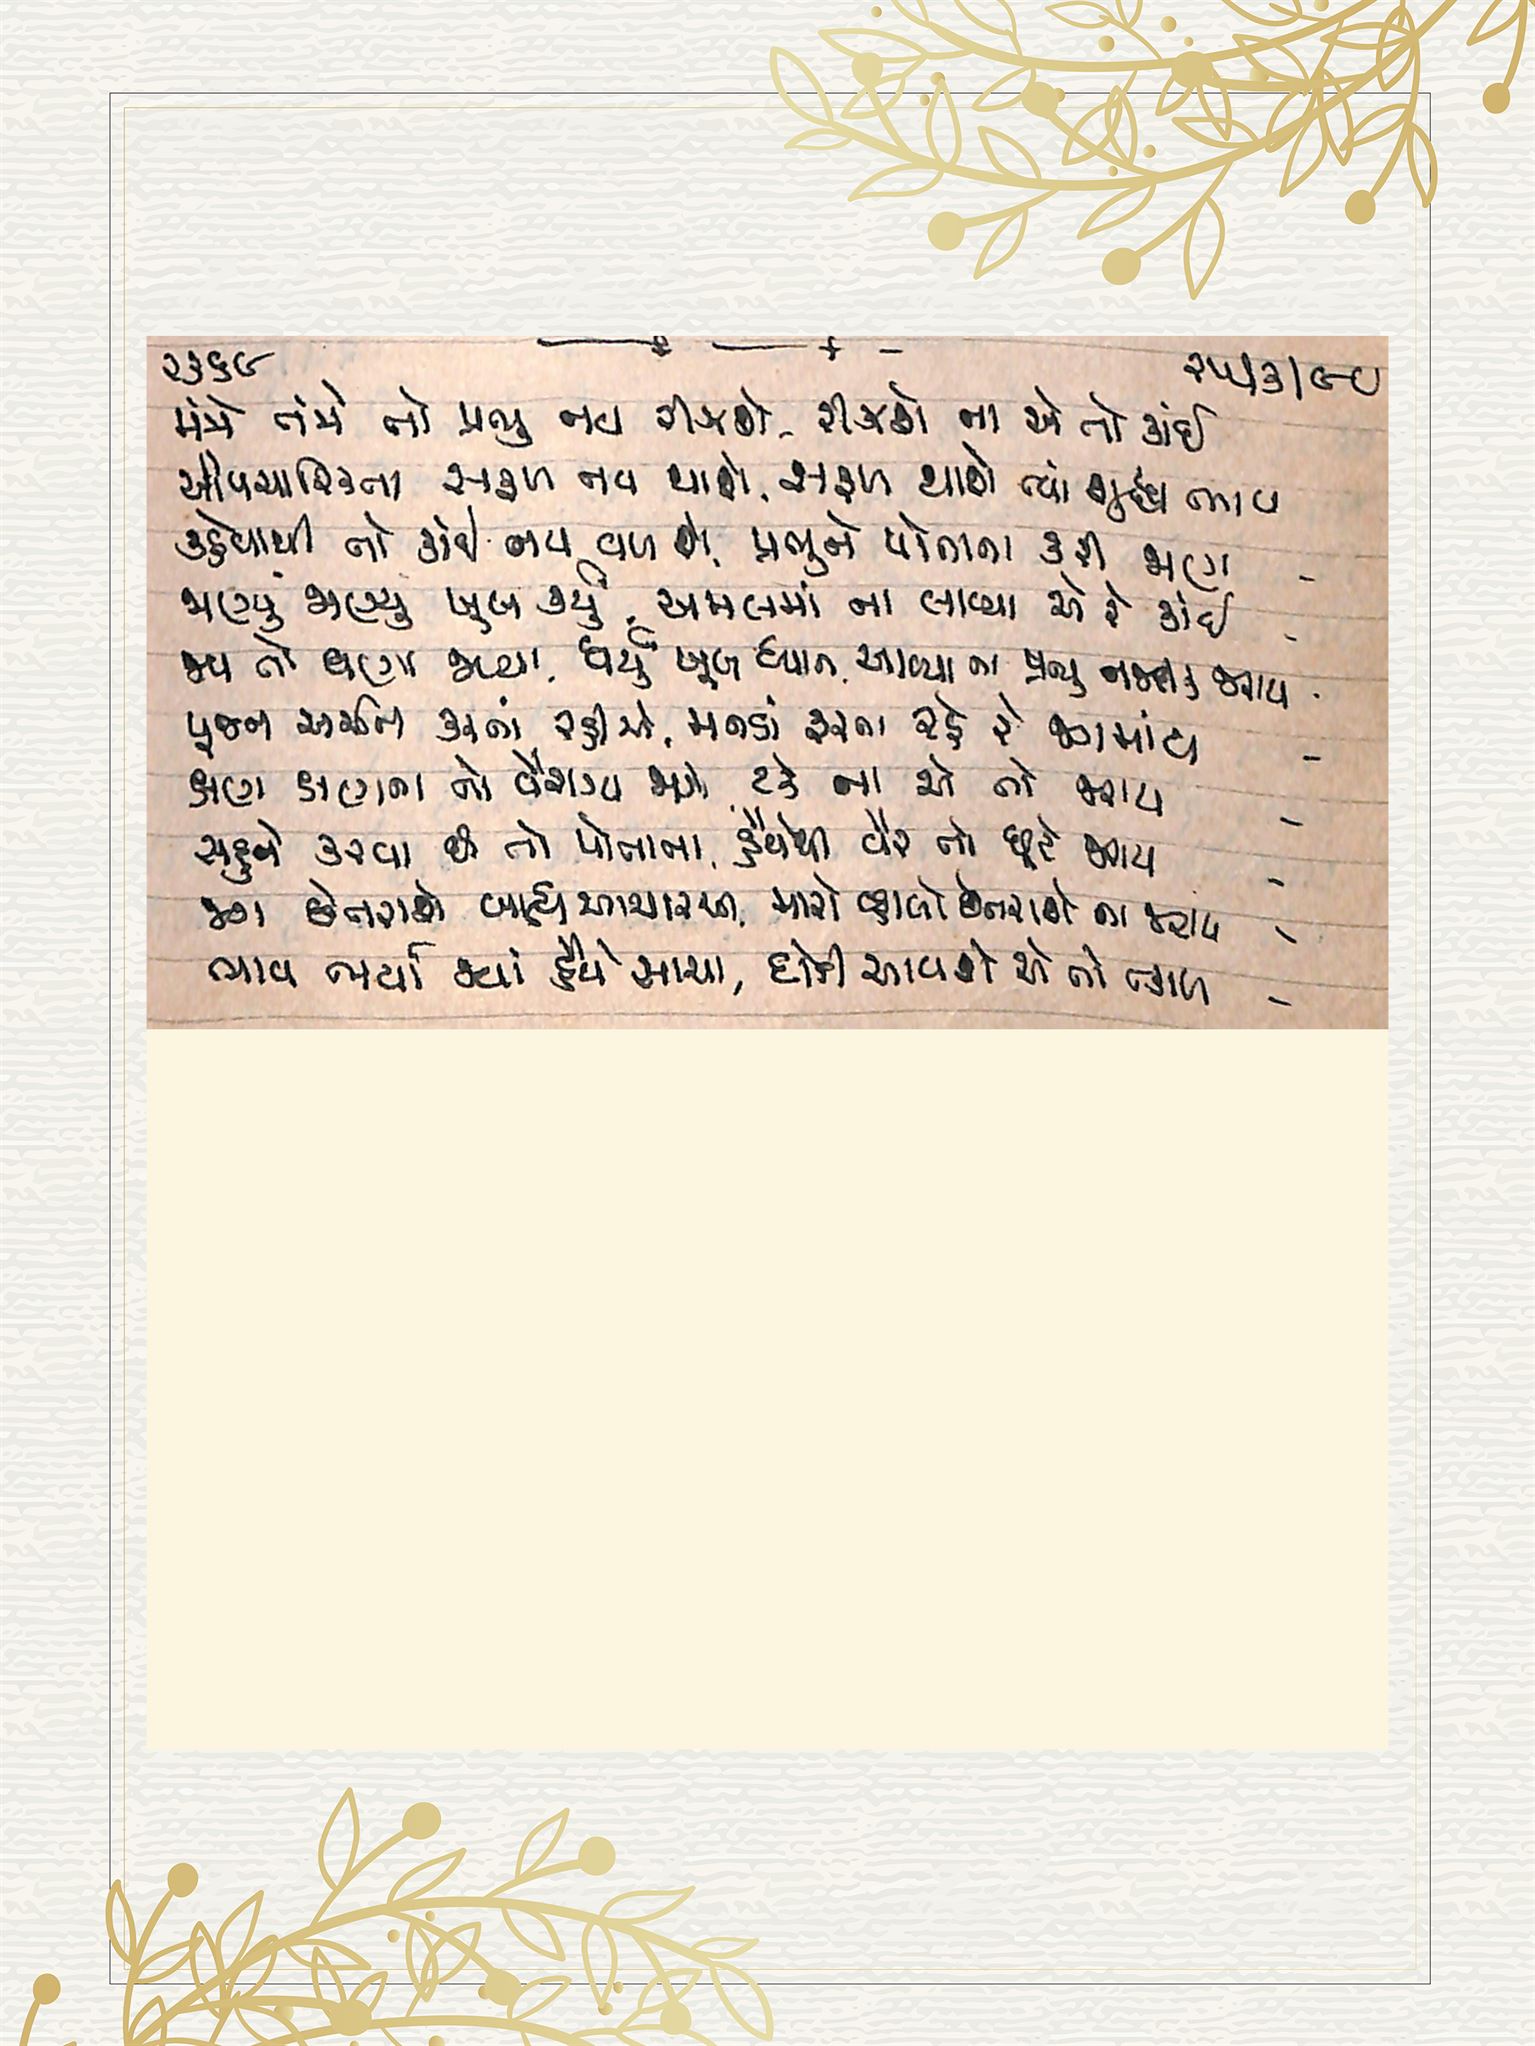 ૨૩૬૯
૨૫/૩/૯૦
મંત્રે તંત્રે તો પ્રભુ નવ રીઝશે. રીઝશે ના એ તો કાંઈ
ઔપચારિકતા સફળ નવ થાશે. સફળ થાશે ત્યાં શુદ્ધ ભાવ
કહેવાથી તો કાંઈ નવ વળશે. પ્રભુને પોતાના કરી જાણ -
જાણ્યું જાણ્યું ખુબ કર્યું. અમલમાં ના લાવ્યા એ રે કાંઈ -
જપ તો ઘણા જપ્યા. ધર્યું ખૂબ ધ્યાન. આવ્યા ના પ્રભુ નજદીક જરાય .
પૂજન અર્ચન કરતાં રહીએ. મનડાં ફરતા રહે રે જગમાંહ્ય -
ક્ષણ ક્ષણના તો વૈરાગ્ય જાગે ટકે ના એ તો જરાય -
સહુને કરવા છે તો પોતાના. હૈયેથી વૈર તો છૂટે જરાય -
જગ છેતરાશે બાહ્ય આચારથી. મારો વ્હાલો છેતરાશે ના જરાય -
ભાવ ભર્યા જ્યાં હૈયે સાચા, દોડી આવશે એ તો તત્કાળ -